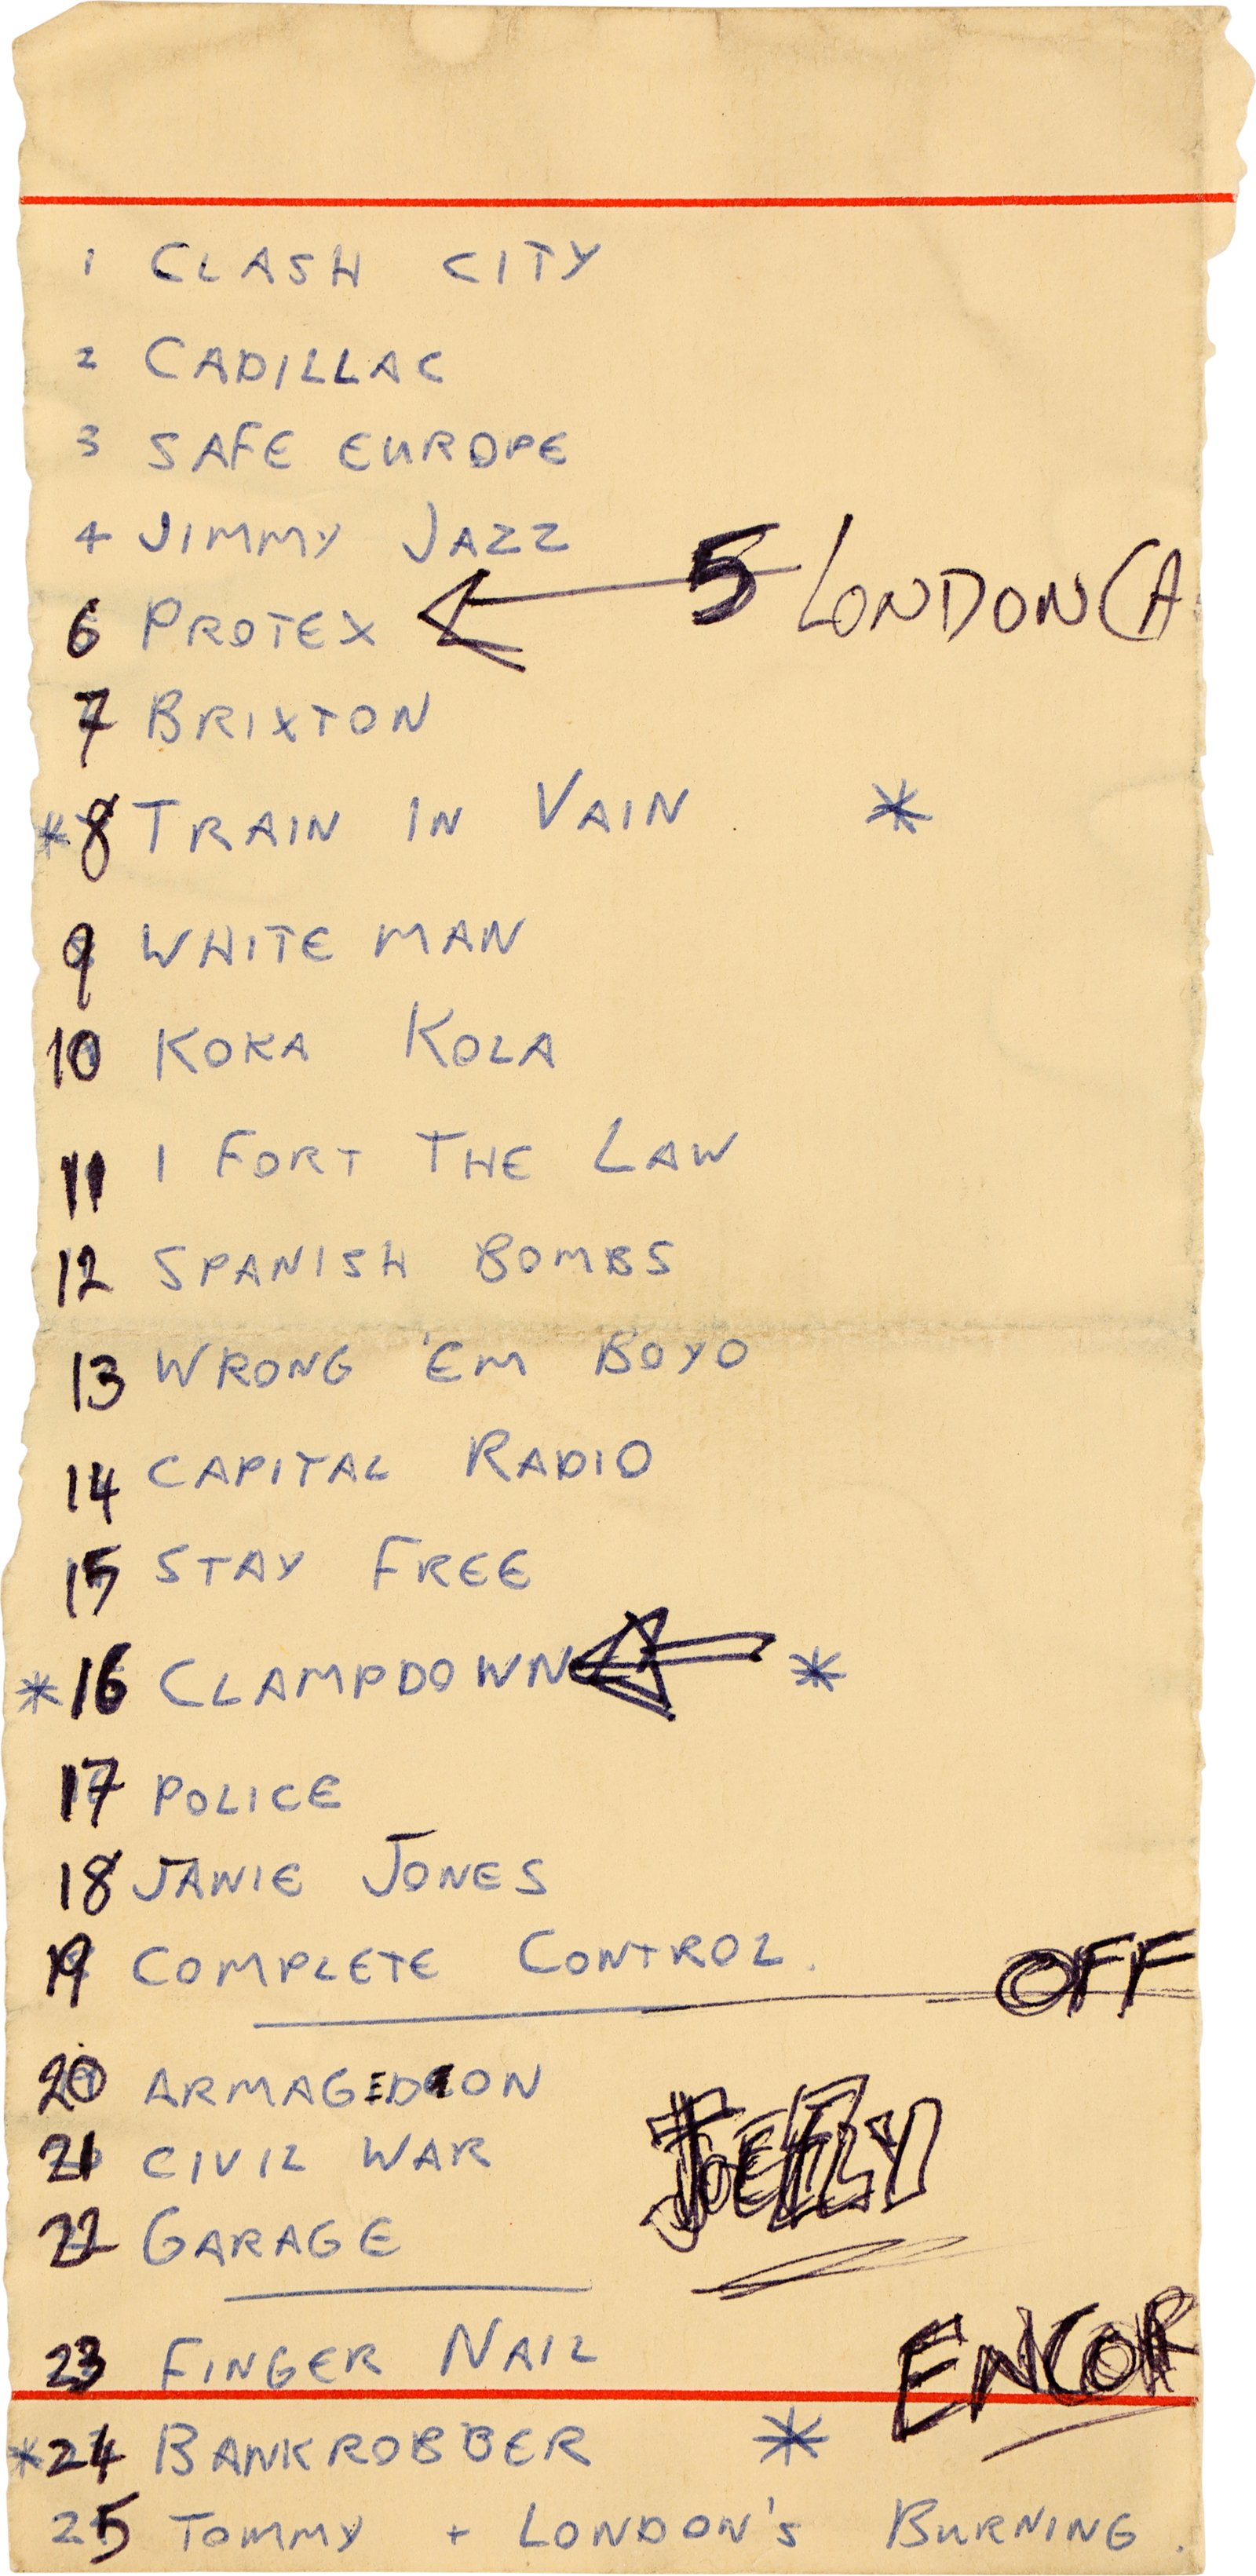 1 CLASH CITY
2 CADILLAC
3 SAFE EUROPE
4 JIMMY JAZZ
5 LONDON CA
6 PROTEX
7 BRIXTON
*8 TRAIN IN VAIN *
9 WHITE MAN
10 KOKA KOLA
11 I FORT THE LAW
12 SPANISH BOMBS
13 WRONG 'EM BOYO
14 CAPITAL RADIO
15 STAY FREE
*16 CLAMPDOWN *
17 POLICE
18 JANIE JONES
19 COMPLETE CONTROL.
OFF
20 ARMAGEDION
21 CIVIL WAR
22 GARAGE
23 FINGER NAIL
ENCOR
*24 BANKROBBER *
25 TOMMY + LONDON'S BURNING.